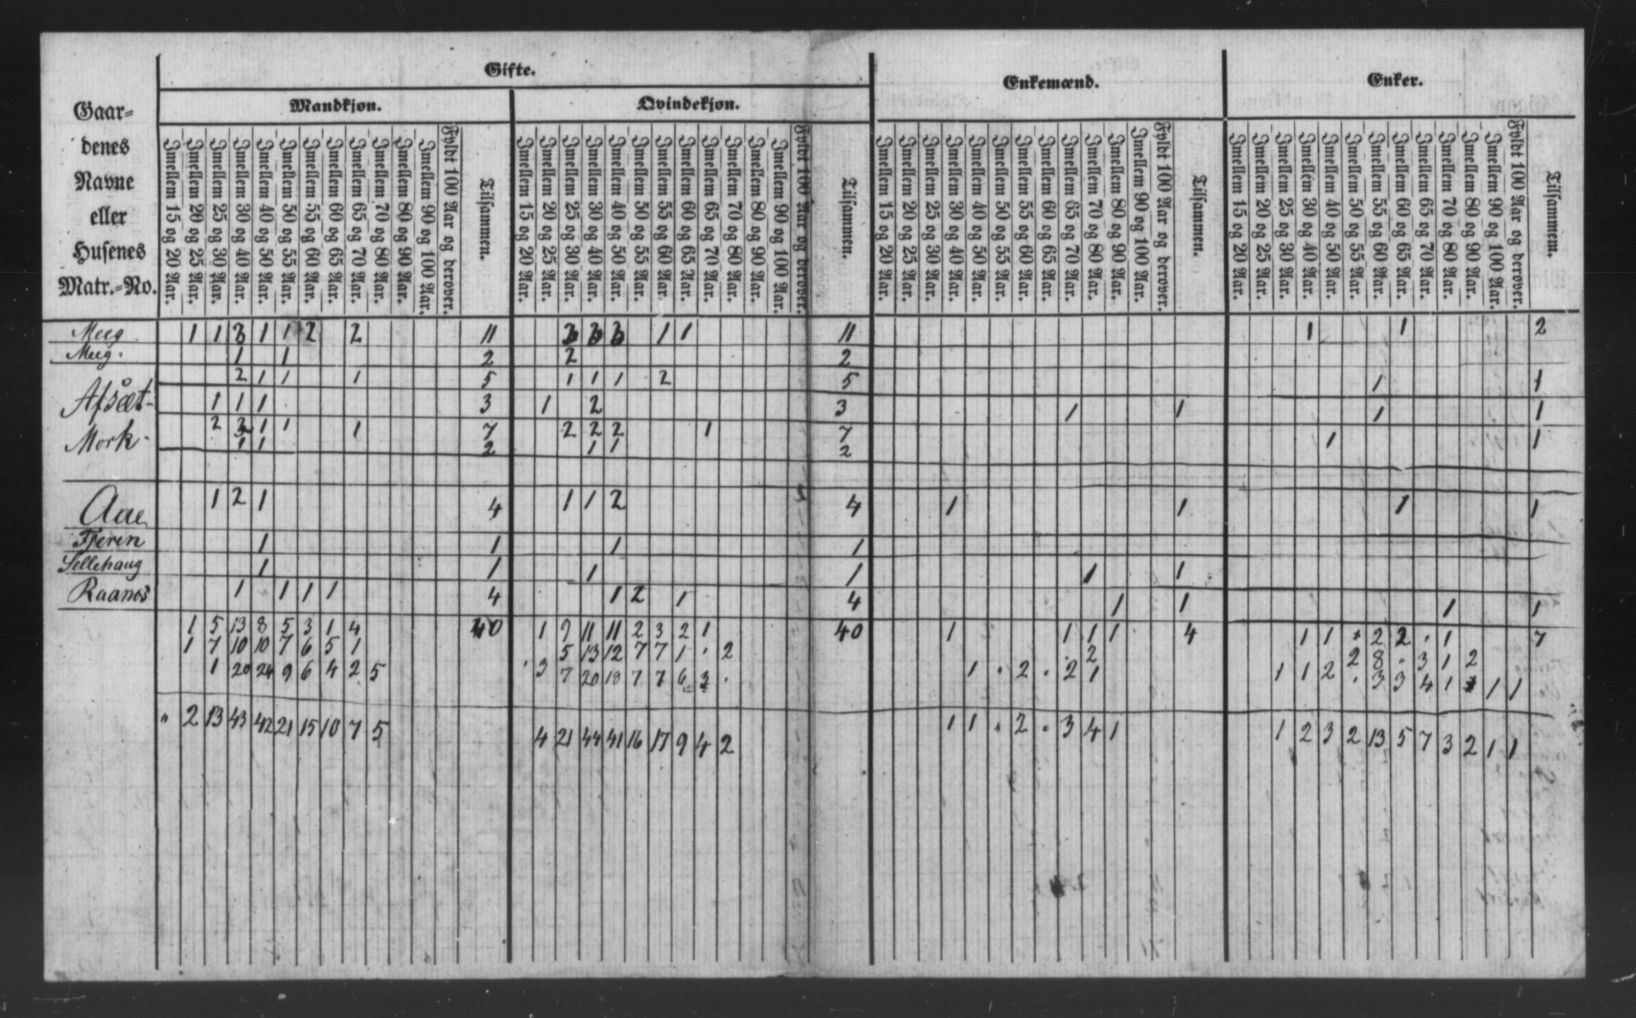 Gaar-
denes
Navne
eller
Husenes
Matr.-No.
Gifte.
Mandkjøn.
Imellem 15 og 20 Aar.
Imellem 20 og 25 Aar.
Imellem 25 og 30 Aar.
Imellem 30 og 40 Aar.
Imellem 40 og 50 Aar.
Imellem 50 og 55 Aar.
Imellem 55 og 60 Aar.
Imellem 60 og 65 Aar.
Imellem 65 og 70 Aar.
Imellem 70 og 80 Aar.
Imellem 80 og 90 Aar.
Imellem 90 og 100 Aar.
Fyldt 100 Aar og derover.
Tilsammen.
Qvindekjøn.
Imellem 15 og 20 Aar.
Imellem 20 og 25 Aar.
Imellem 25 og 30 Aar.
Imellem 30 og 40 Aar.
Imellem 40 og 50 Aar.
Imellem 50 og 55 Aar.
Imellem 55 og 60 Aar.
Imellem 60 og 65 Aar.
Imellem 65 og 70 Aar.
Imellem 70 og 80 Aar.
Imellem 80 og 90 Aar.
Imellem 90 og 100 Aar.
Fyldt 100 Aar og derover.
Tilsammen.
Enkemænd.
Imellem 15 og 20 Aar.
Imellem 20 og 25 Aar.
Imellem 25 og 30 Aar.
Imellem 30 og 40 Aar.
Imellem 40 og 50 Aar.
Imellem 50 og 55 Aar.
Imellem 55 og 60 Aar.
Imellem 60 og 65 Aar.
Imellem 65 og 70 Aar.
Imellem 70 og 80 Aar.
Imellem 80 og 90 Aar.
Imellem 90 og 100 Aar.
Fyldt 100 Aar og derover.
Tilsammen.
Enker.
Imellem 15 og 20 Aar.
Imellem 20 og 25 Aar.
Imellem 25 og 30 Aar.
Imellem 30 og 40 Aar.
Imellem 40 og 50 Aar.
Imellem 50 og 55 Aar.
Imellem 55 og 60 Aar.
Imellem 60 og 65 Aar.
Imellem 65 og 70 Aar.
Imellem 70 og 80 Aar.
Imellem 80 og 90 Aar.
Imellem 90 og 100 Aar.
Fyldt 100 Aar og derover.
Tilsammem.
1 1 3 1 1 2 2 11 3 3 3 1 1 11 1 1 2
1 1 2 2 2
2 1 1 1 5 1 1 1 2 5 1 1
Afsæt- 1 1 1 3 1 2 3 1 1 1 1
Mork- 2 2 1 1 1 7 2 2 2 1 7 1 1
1 1 2 1 1 2
Aae 1 2 1 4 1 1 2 4 1 1 1 1
1 1 1 1
Sellehaug 1 1 1 1 1 1
Raanes 1 1 1 1 4 1 2 1 4 1 1 1 1
1 5 13 8 5 3 1 4 40 1 9 11 11 2 3 2 1 40 1 1 1 1 4 1 1 2 2 1 7
1 7 10 10 7 6 5 1 5 13 12 7 7 1 2 2 2 8 3 1 2
1 20 24 9 6 4 2 5 3 7 20 18 7 7 6 3 1 2 2 1 1 1 2 3 3 4 1 1 1
" 2 13 43 42 21 15 10 7 5 4 21 44 41 16 17 9 4 2 1 1 2 3 4 1 1 2 3 2 13 5 7 3 2 1 1